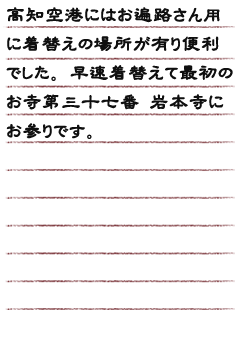 高知空港にはお遍路さん用
に着替えの場所が有り便利
でした。早速着替えて最初の
お寺第三十七番 岩本寺に
お参りです。